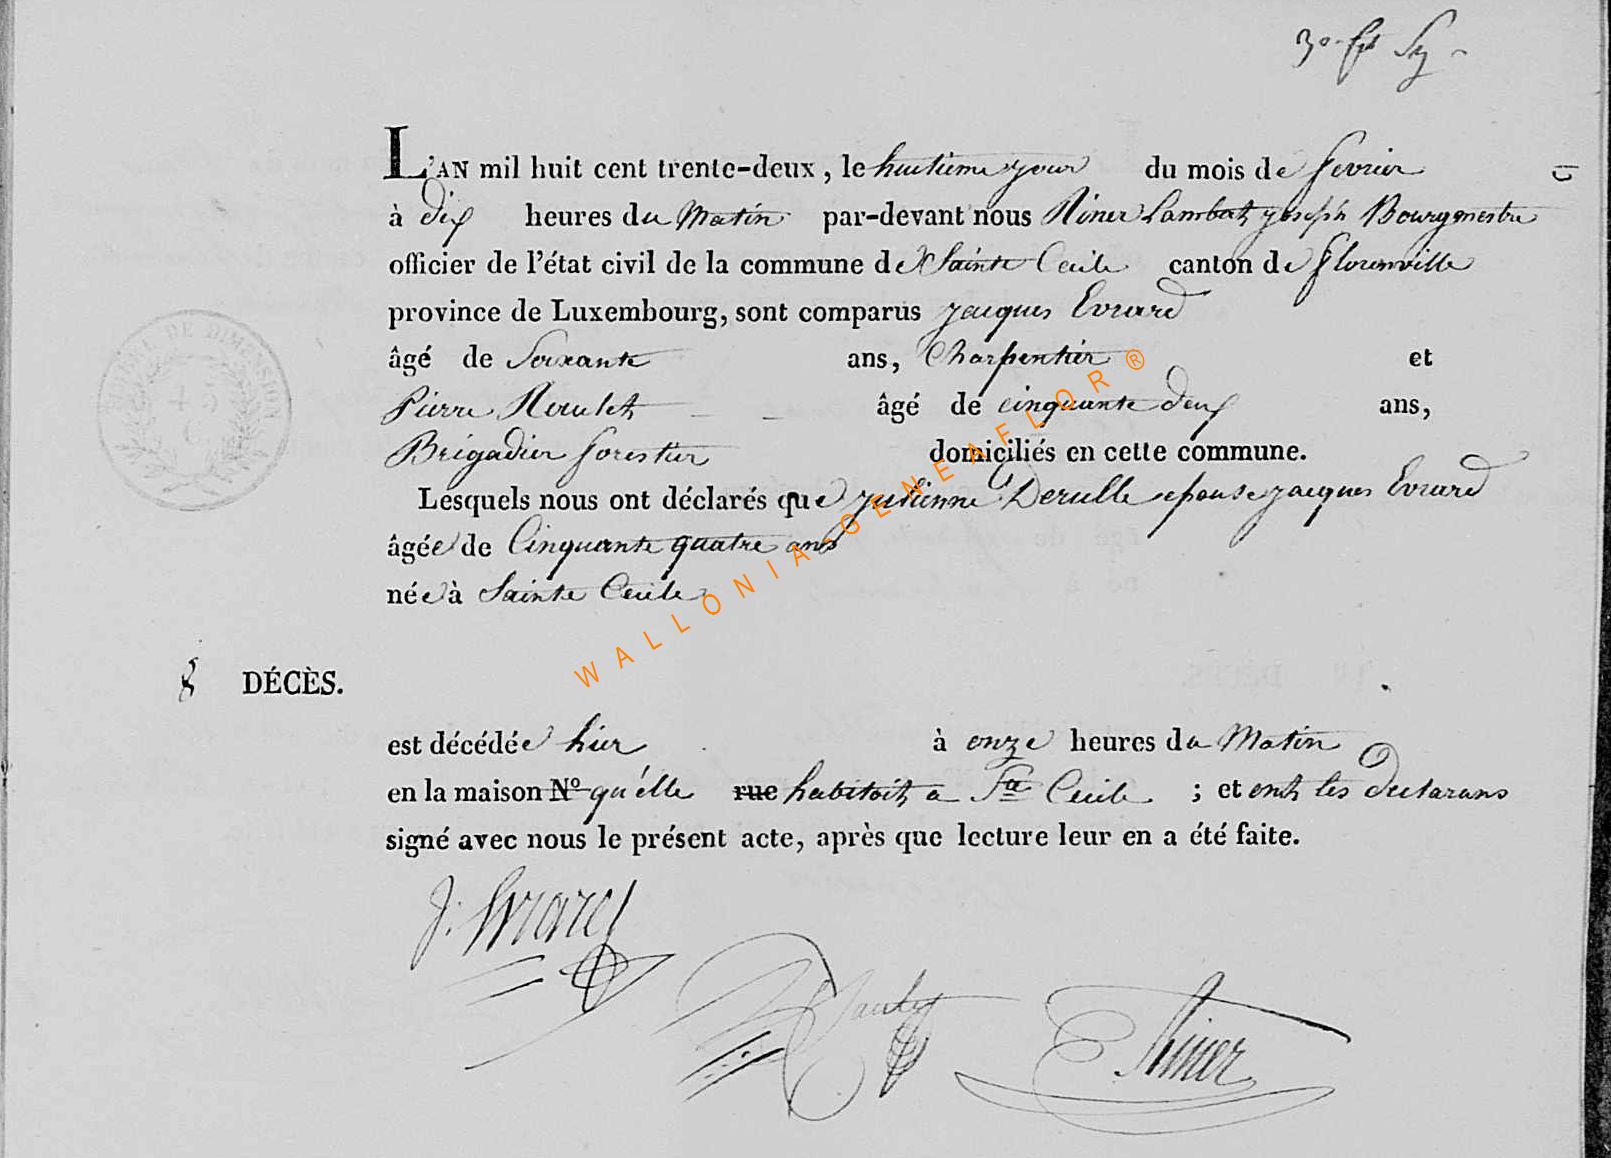 L'AN mil huit cent trente-deux, le huitieme jour du mois de fevrier
à dix heures du Matin par-devant nous Riner Lambert joseph Bourgmestre
officier de l'état civil de la commune de Sainte Cecile canton de florenville
province de Luxembourg, sont comparus jacques Evrard
âgé de Soixante ans, Charpentier et
Pierre âgé de cinquante deux ans,
Brigadier forestier domiciliés en cette commune.
Lesquels nous ont déclarés que julienne Derulle epouse jacques Evrard
âgée de Cinquante quatre ans
née à Sainte Cecile
8 DÉCÈS.
est décédée hier à onze heures du Matin
en la maison N° qu'elle rue habitoit a Ste Cecile ; et ont les declarans
signé avec nous le présent acte, après que lecture leur en a été faite.
J. Evrard
Riner
TIMBRE DE DIMENSION
45
C.
WALLONIA-GENEAFLOR®